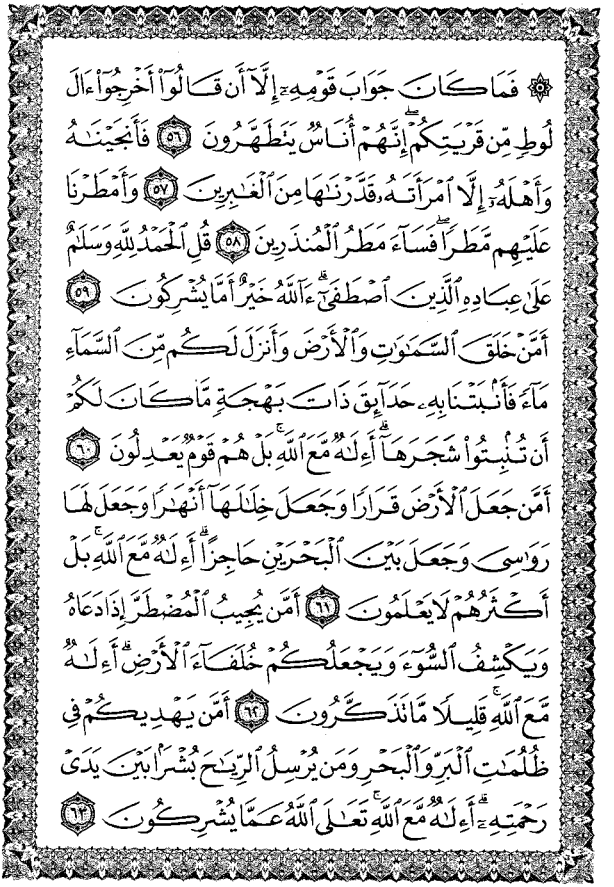 ۞ فَمَا كَانَ جَوَابَ قَوْمِهِۦٓ إِلَّآ أَن قَالُوٓا۟ أَخْرِجُوٓا۟ ءَالَ
لُوطٍ مِّن قَرْيَتِكُمْ ۖ إِنَّهُمْ أُنَاسٌ يَتَطَهَّرُونَ ٥٦ فَأَنجَيْنَـٰهُ
وَأَهْلَهُۥٓ إِلَّا ٱمْرَأَتَهُۥ قَدَّرْنَـٰهَا مِنَ ٱلْغَـٰبِرِينَ ٥٧ وَأَمْطَرْنَا
عَلَيْهِم مَّطَرًا ۖ فَسَآءَ مَطَرُ ٱلْمُنذَرِينَ ٥٨ قُلِ ٱلْحَمْدُ لِلَّهِ وَسَلَـٰمٌ
عَلَىٰ عِبَادِهِ ٱلَّذِينَ ٱصْطَفَىٰٓ ۗ ءَآللَّهُ خَيْرٌ أَمَّا يُشْرِكُونَ ٥٩
أَمَّنْ خَلَقَ ٱلسَّمَـٰوَٰتِ وَٱلْأَرْضَ وَأَنزَلَ لَكُم مِّنَ ٱلسَّمَآءِ
مَآءً فَأَنۢبَتْنَا بِهِۦ حَدَآئِقَ ذَاتَ بَهْجَةٍ مَّا كَانَ لَكُمْ
أَن تُنۢبِتُوا۟ شَجَرَهَآ ۗ أَءِلَـٰهٌ مَّعَ ٱللَّهِ ۚ بَلْ هُمْ قَوْمٌ يَعْدِلُونَ ٦٠
أَمَّن جَعَلَ ٱلْأَرْضَ قَرَارًا وَجَعَلَ خِلَـٰلَهَآ أَنْهَـٰرًا وَجَعَلَ لَهَا
رَوَٰسِىَ وَجَعَلَ بَيْنَ ٱلْبَحْرَيْنِ حَاجِزًا ۗ أَءِلَـٰهٌ مَّعَ ٱللَّهِ ۚ بَلْ
أَكْثَرُهُمْ لَا يَعْلَمُونَ ٦١ أَمَّن يُجِيبُ ٱلْمُضْطَرَّ إِذَا دَعَاهُ
وَيَكْشِفُ ٱلسُّوٓءَ وَيَجْعَلُكُمْ خُلَفَآءَ ٱلْأَرْضِ ۗ أَءِلَـٰهٌ
مَّعَ ٱللَّهِ ۚ قَلِيلًا مَّا تَذَكَّرُونَ ٦٢ أَمَّن يَهْدِيكُمْ فِى
ظُلُمَـٰتِ ٱلْبَرِّ وَٱلْبَحْرِ وَمَن يُرْسِلُ ٱلرِّيَـٰحَ بُشْرًۢا بَيْنَ يَدَىْ
رَحْمَتِهِۦٓ ۗ أَءِلَـٰهٌ مَّعَ ٱللَّهِ ۚ تَعَـٰلَى ٱللَّهُ عَمَّا يُشْرِكُونَ ٦٣